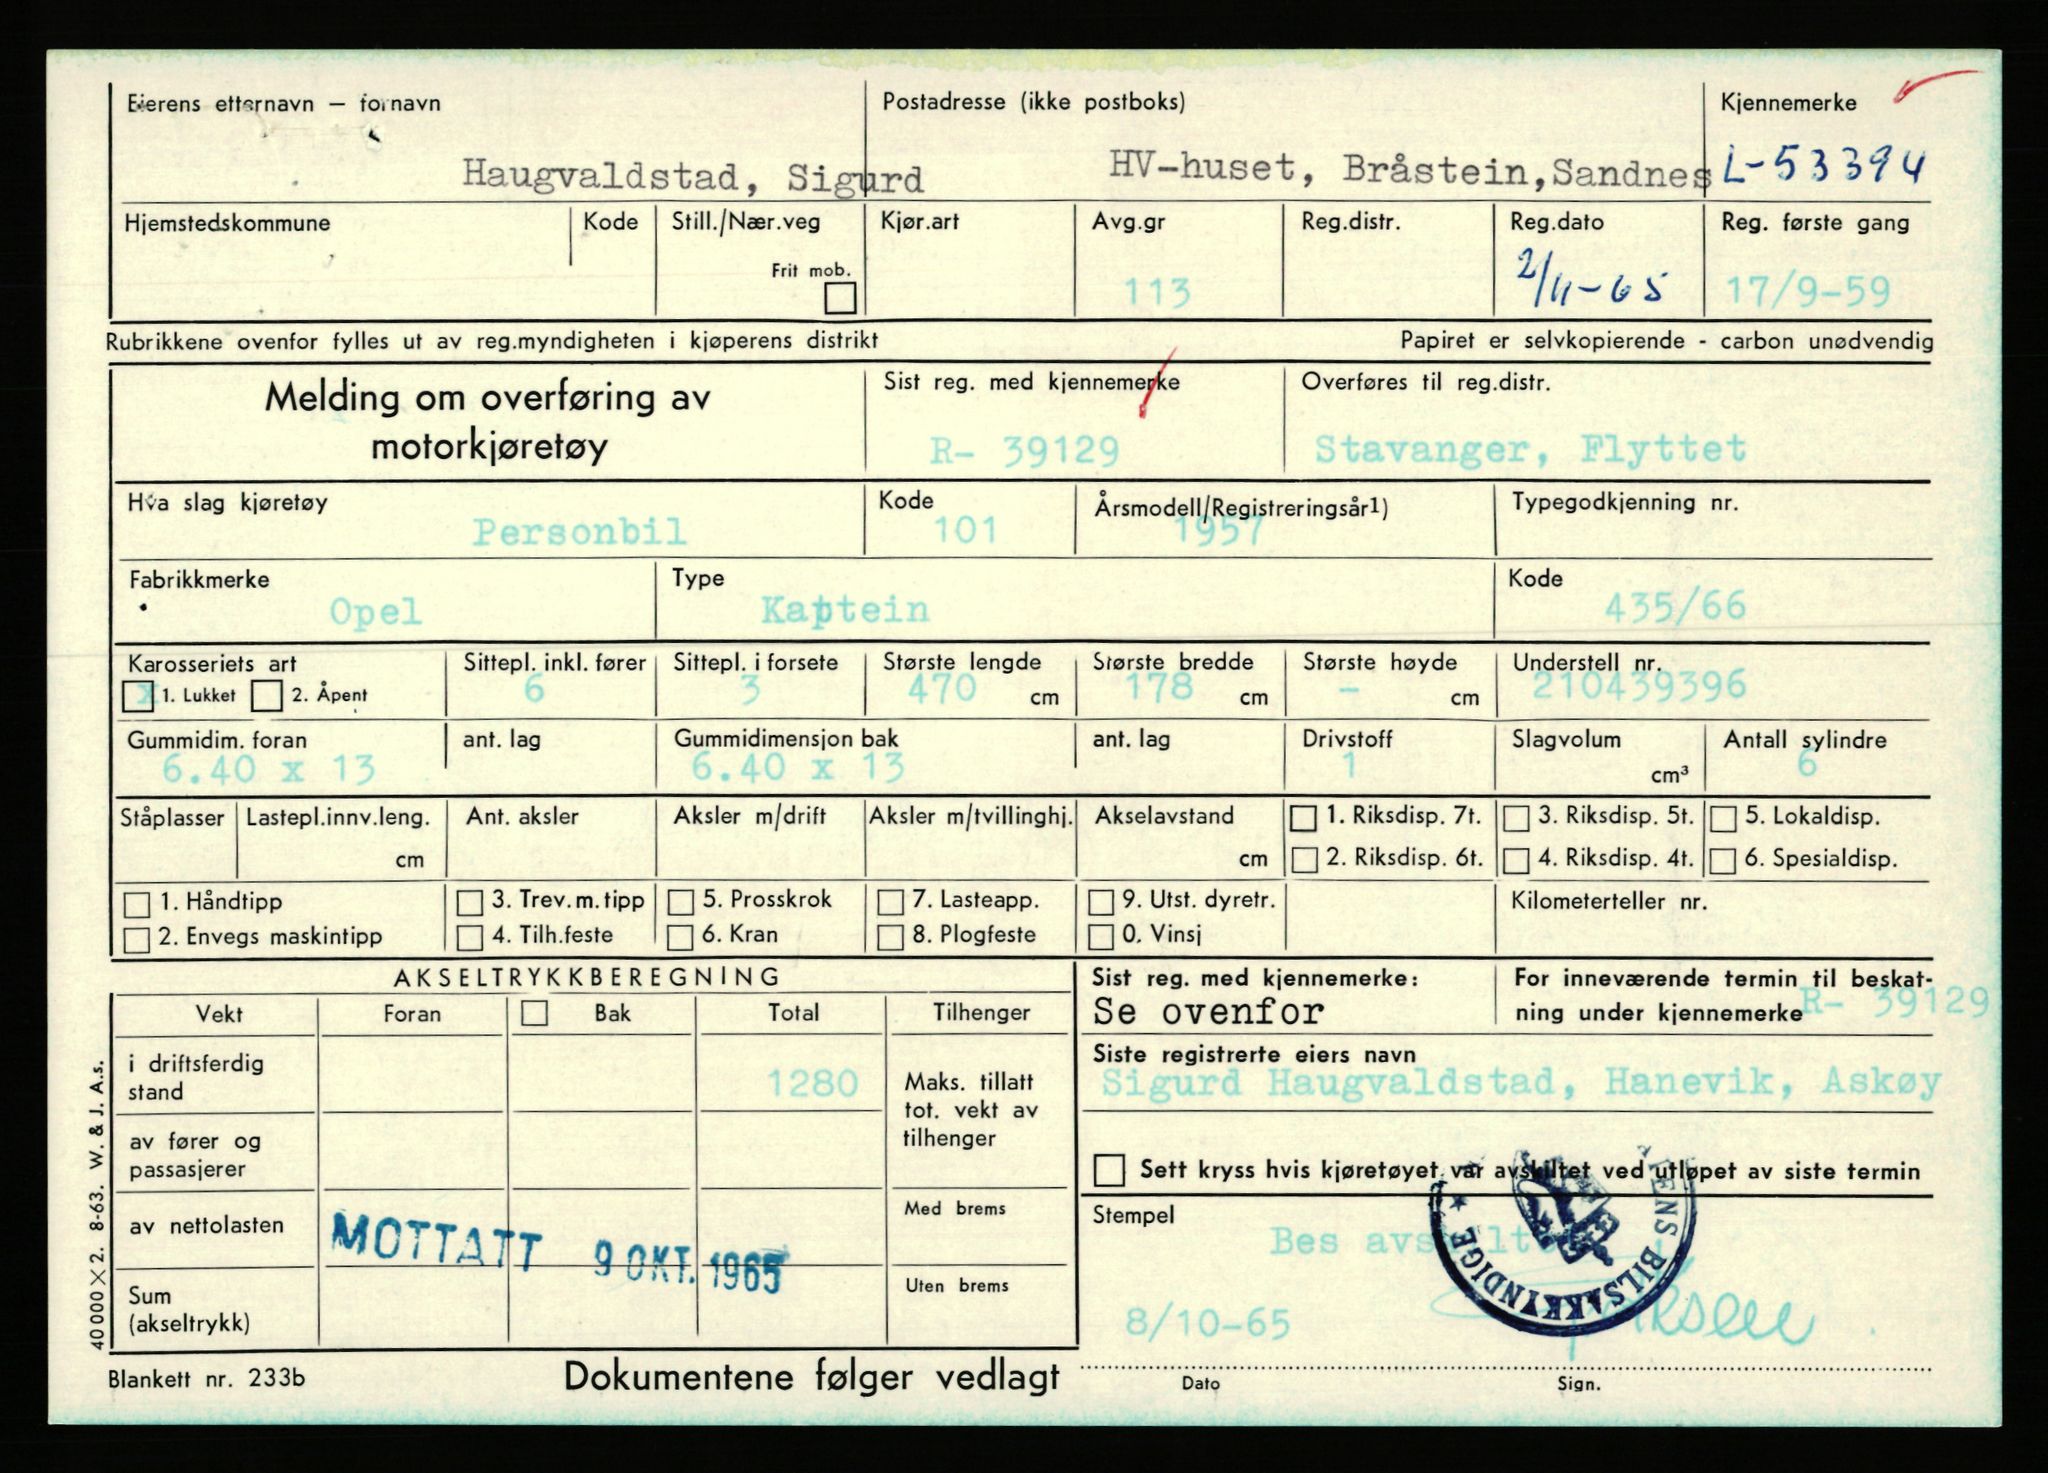 Eierens etternavn – fornavn
Postadresse (ikke postboks)
Kjennemerke
Haugvaldstad, Sigurd
HV-huset, Bråstein, Sandnes
L-53394
Hjemstedskommune
Kode
Still./Nær.veg
Frit mob.
Kjør.art
Avg.gr
113
Reg.distr.
Reg.dato
2/11-65
Reg. første gang
17/9-59
Rubrikkene ovenfor fylles ut av reg.myndigheten i kjøperens distrikt
Papiret er selvkopierende - carbon unødvendig
Melding om overføring av
motorkjøretøy
Sist reg. med kjennemerke
R- 39129
Overføres til reg.distr.
Stavanger, Flyttet
Hva slag kjøretøy
Personbil
Kode
101
Årsmodell/Registreringsår1)
1957
Typegodkjenning nr.
Fabrikkmerke
Opel
Type
Kaptein
Kode
435/66
Karosseriets art
x 1. Lukket 2. Åpent
Sittepl. inkl. fører
6
Sittepl. i forsete
3
Største lengde
470 cm
Største bredde
178 cm
Største høyde
- cm
Understell nr.
210439396
Gummidim. foran
6.40 x 13
ant. lag
Gummidimensjon bak
6.40 x 13
ant. lag
Drivstoff
1
Slagvolum
cm³
Antall sylindre
6
Ståplasser
Lastepl.innv.leng.
cm
Ant. aksler
Aksler m/drift
Aksler m/tvillinghj.
Akselavstand
cm
1. Riksdisp. 7t.
2. Riksdisp. 6t.
3. Riksdisp. 5t.
4. Riksdisp. 4t.
5. Lokaldisp.
6. Spesialdisp.
1. Håndtipp
2. Envegs maskintipp
3. Trev. m. tipp
4. Tilh.feste
5. Prosskrok
6. Kran
7. Lasteapp.
8. Plogfeste
9. Utst. dyretr.
0. Vinsj
Kilometerteller nr.
AKSELTRYKKBEREGNING
Vekt
Foran
Bak
Total
Tilhenger
i driftsferdig
stand
1280
Maks. tillatt
tot. vekt av
tilhenger
av fører og
passasjerer
av nettolasten
Med brems
MOTTATT 9 OKT. 1965
Sum
(akseltrykk)
Uten brems
Sist reg. med kjennemerke:
Se ovenfor
For inneværende termin til beskat-
ning under kjennemerke R- 39129
Siste registrerte eiers navn
Sigurd Haugvaldstad, Hanevik, Askøy
Sett kryss hvis kjøretøyet var avskiltet ved utløpet av siste termin
Stempel
Bes avskilte
BILSAKKYNDIGE
8/10-65
Dato
Sign.
40 000 X 2. 8-63. W. & J. A.s.
Blankett nr. 233b
Dokumentene følger vedlagt